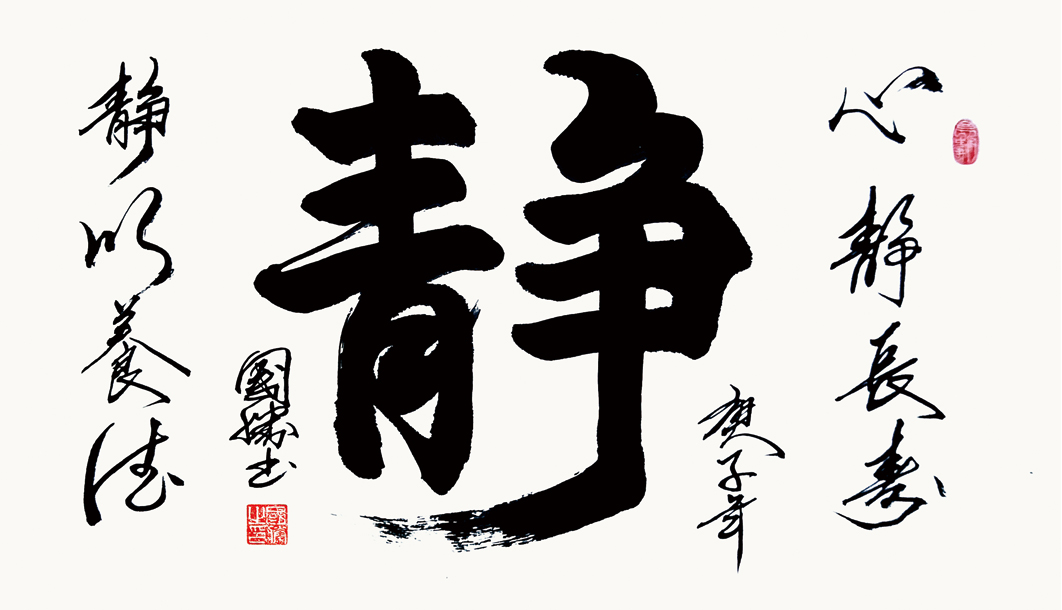 心静長壽
庚子年
静
國勝书
静以養德